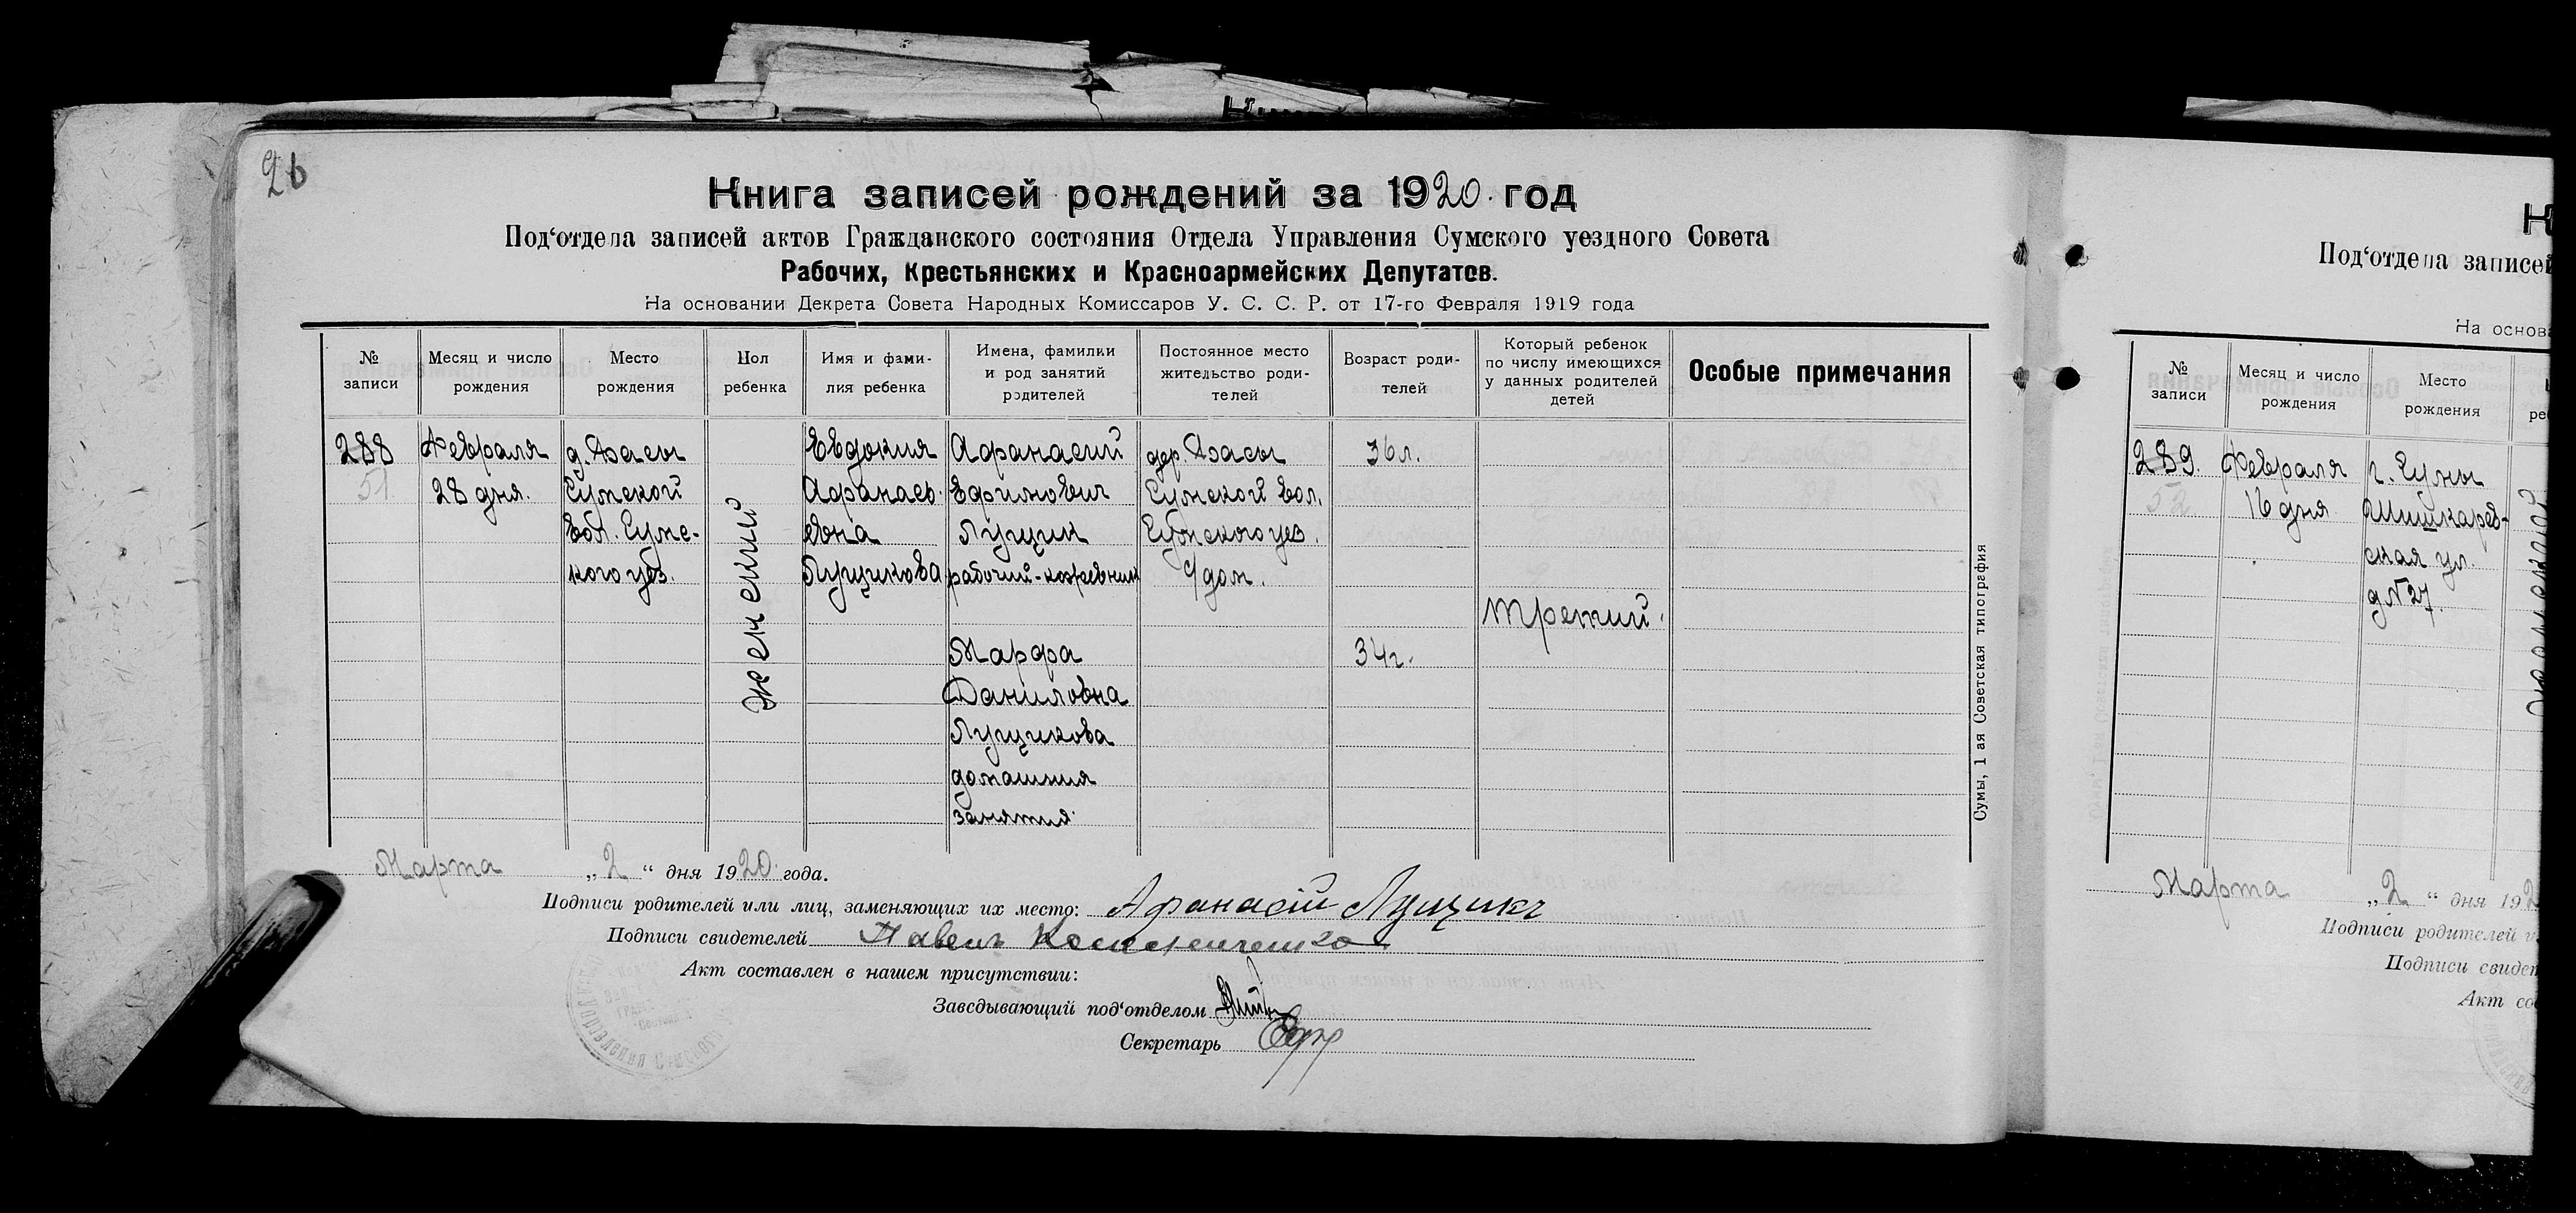 26
Книга записей рождений за 1920. год
Под‘отдела записей актов Гражданского состояния Отдела Управления Сумского уездного Совета
Рабочих, Крестьянских и Красноармейских Депутатов.
На основании Декрета Совета Народных Комиссаров У. С. С. Р. от 17-го Февраля 1919 года
№ записи
Месяц и число рождения
Место рождения
Пол ребенка
Имя и фами-
лия ребенка
Имена, фамилии
и род занятий
родителей
Постоянное место
жительство роди-
телей
Возраст роди-
телей
Который ребенок
по числу имеющихся
у данных родителей
детей
Особые примечания
288
51
Февраля
28 дня.
д. Басы
Сумской
вол. Сумс-
кого уез.
женский
Евдокия
Афанась-
евна
Лущикова
Афанасий
Ефимович
Лущик
рабочий-кожевник
Марфа
Даниловна
Лущикова
домашния
занятия.
дер. Басы
Сумской вол.
Сумского уез.
с/дом.
36 л.
34 г.
третий.
Марта „2“ дня 1920 года.
Подписи родителей или лиц, заменяющих их место: Афанасій Лущикъ
Подписи свидетелей Павелъ
Акт составлен в нашем присутствии:
Заведывающий под‘отделом
Секретарь
Сумы, 1 ая Советская типография
К
Под‘отдела записей
На основа
№ записи
Месяц и число рождения
Место рождения
289.
52
Февраля
16 дня
г. Сумы
Шишкарев-
ская ул.
д № 27.
Марта „2“ дня 192
Подписи родителей и
Подписи свидет
Акт со